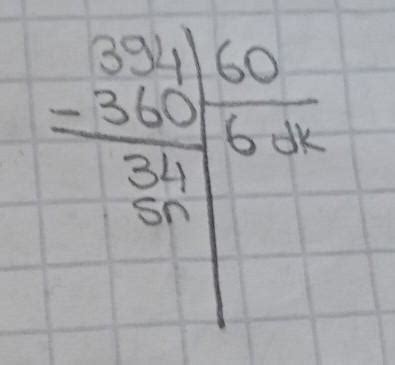 394 60
- 360 6 dk
34
sn